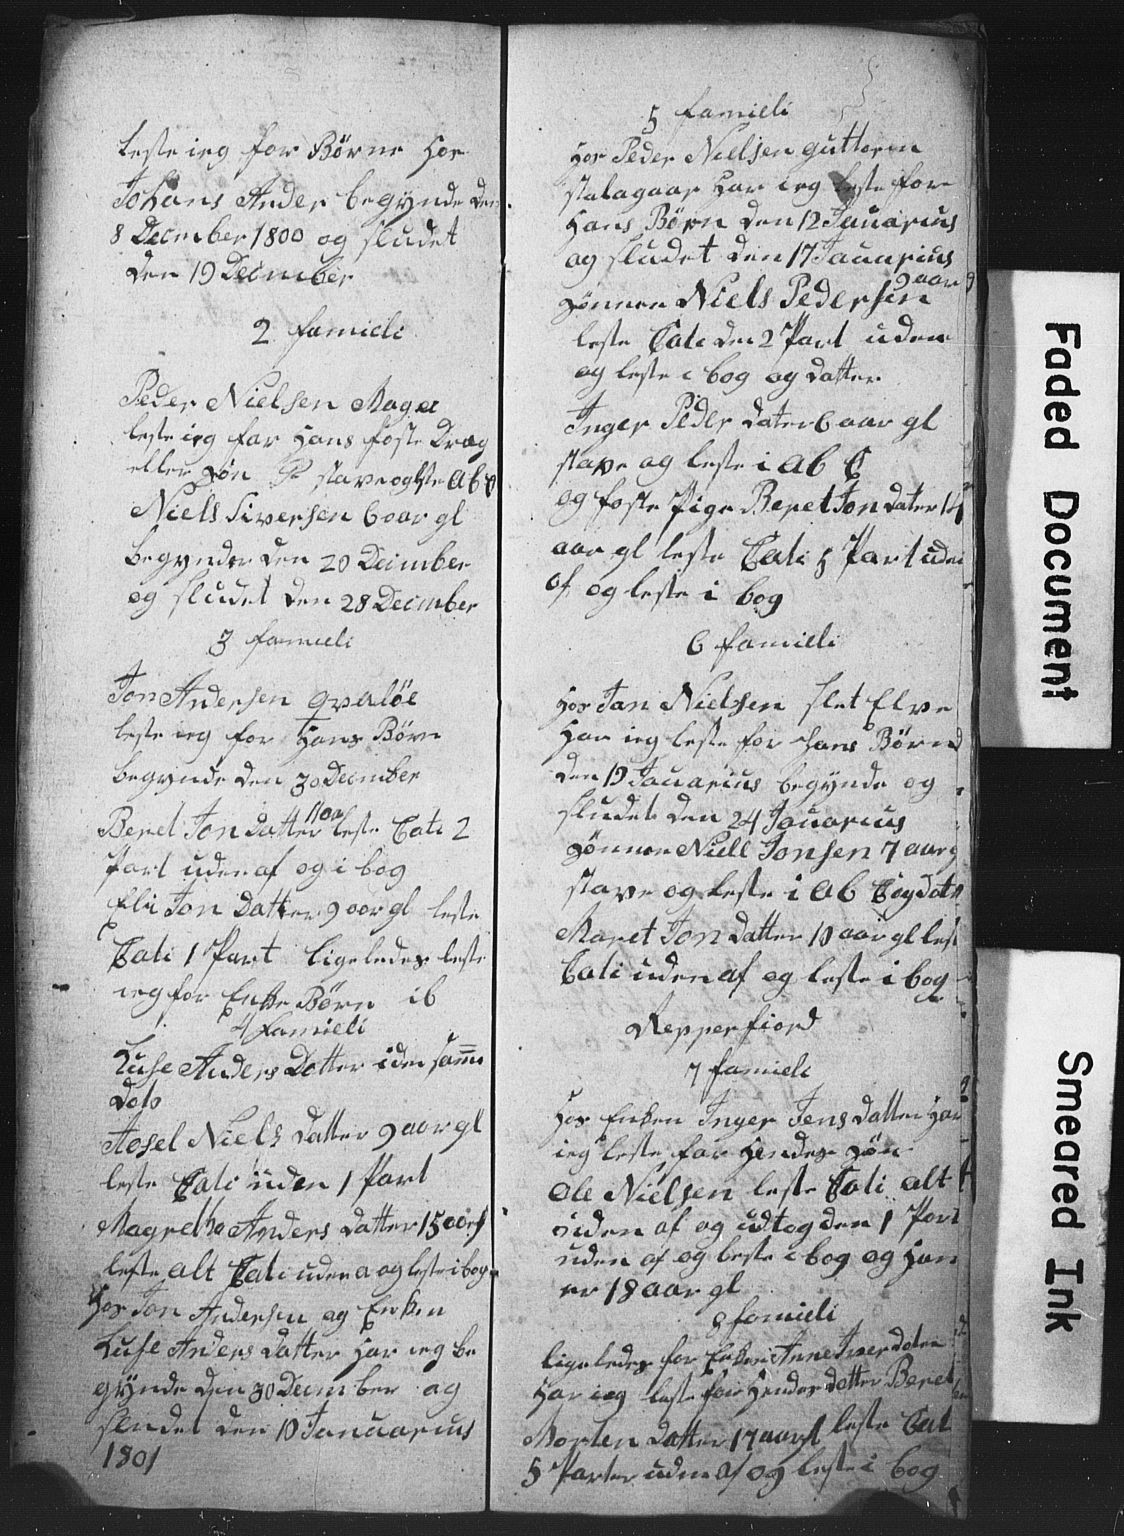 leste ieg for Børne Hos
Johans Ander begynde den
8 December 1800 og sludet
den 19 December
2 famieli
Peder Nielsen Mager
leste ieg for Hans foste Dræg
eller søn stave og leste ABC
Niels Siversen 6 aar gl
begynder den 20 December
og sludet den 28 December
3 famieli
Jon Andersen qvaløe
leste ieg for Hans Børn
begynde den 30 December
Beret Jon datter 11 aar leste Cati 2
Part uden af og i bog
Eli Jon datter 9 aar gl leste
Cati 1 Part ligeledes leste
ieg for Enke Børn ib
4 famieli
Luse Anders Datter iden samme
dato
Aosel Niels datter 9 aar gl
leste Cati uden 1 Part
Magretha Anders datter 15 aar gl
leste alt Cati uden a og leste i bog
Hos Jon Andersen og Enken
Luse Anders datter Har ieg be
gynde den 30 December og
sludet den 10 Januarius
1801
5 famieli
Hos Peder Nielsen gutterm
stalagaar Har ieg leste for
Hans Børn den 12 Januarius
og sludet den 17 Januarius
sønnen Niels Pedersen 9 aar
leste Cati den 2 Part uden
og leste i bog og datter
Inger Peder dater 6 aar gl
stave og leste i AB C
og foste Pige Beret Jon dater 14
aar gl leste Cati 5 Part uden
af og leste i bog
6 famieli
Hos Jon Nielsen slet Elve
Har ieg leste for Hans Børn
den 19 Januarius begynde og
sludet den 24 Januarius
sønnen Niell Jonsen 7 aar g
stave og leste i AB C og dat
Maret Jon datter 10 aar gl lest
Cati uden af og leste i bog
Repperfiord
7 famieli
Hos Enken Inger Jens datter Har
ieg leste for Hendes søn
Ole Nielsen leste Cati alt
uden af og udtog den 1 Part
uden af og leste i bog og Han
er 18 aar gl
8 famieli
ligeledes for Enken Anne Iver doter
Har ieg leste for Hendes datter Beret
Morten datter 17 aar gl leste Cat
5 Parter uden af og leste i bog
Faded Document
Smeared Ink